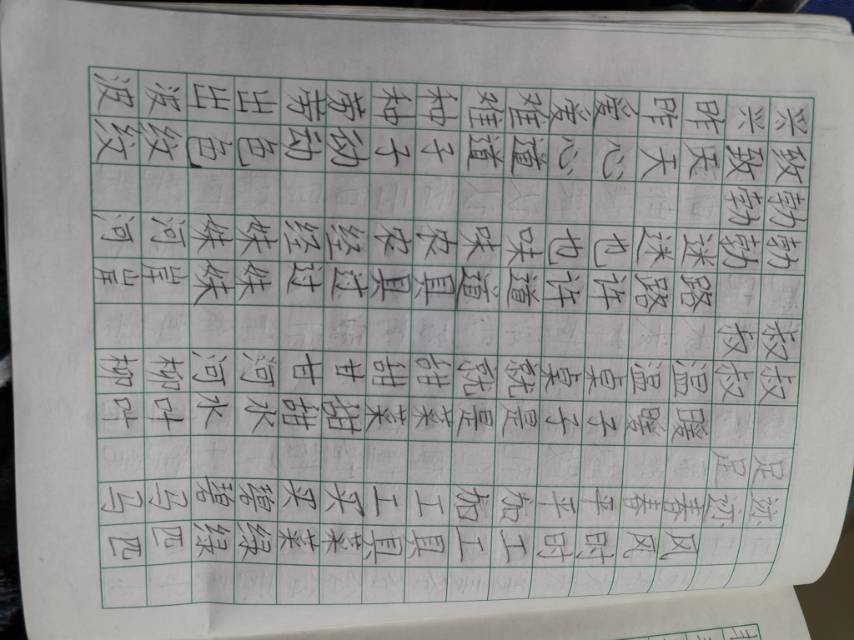 兴致勃勃 叔叔 足迹
兴致勃勃 叔叔 足迹
昨天 迷路 温暖 春风
昨天 迷路 温暖 春风
爱心 也许 桌子 平时
爱心 也许 桌子 平时
难道 味道 就是 加工
难道 味道 就是 加工
种子 农具 甜菜 工具
种子 农具 甜菜 工具
劳动 经过 甘甜 买菜
劳动 经过 甘甜 买菜
出色 妹妹 河水 碧绿
出色 妹妹 河水 碧绿
波纹 河岸 柳叶 马匹
波纹 河岸 柳叶 马匹